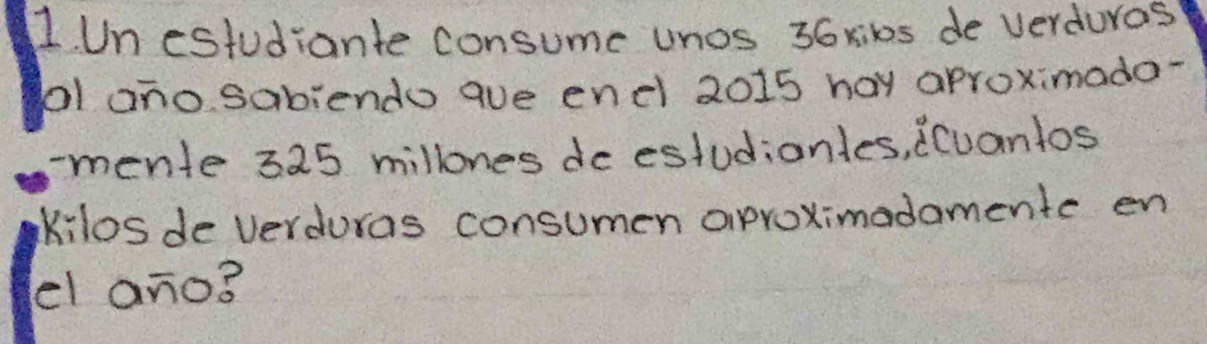 1. Un estudiante consume unos 36 kilos de verduras
al año. sabiendo que en el 2015 hay aproximada-
-mente 325 millones de estudiantes, ¿cuantos
Kilos de verduras consumen aproximadamente en
el año?